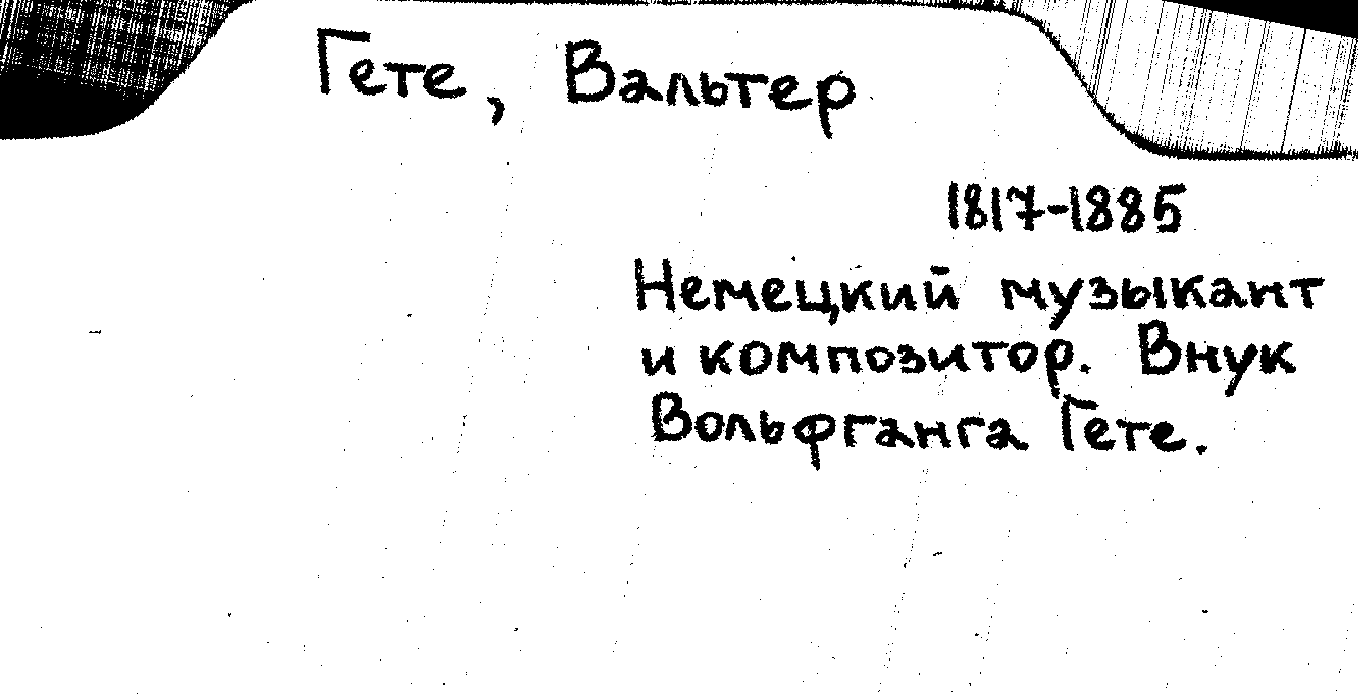 Гете, Вальтер
1817-1885
Немецкий музыкант
и композитор. Внук
Вольфганга Гете.